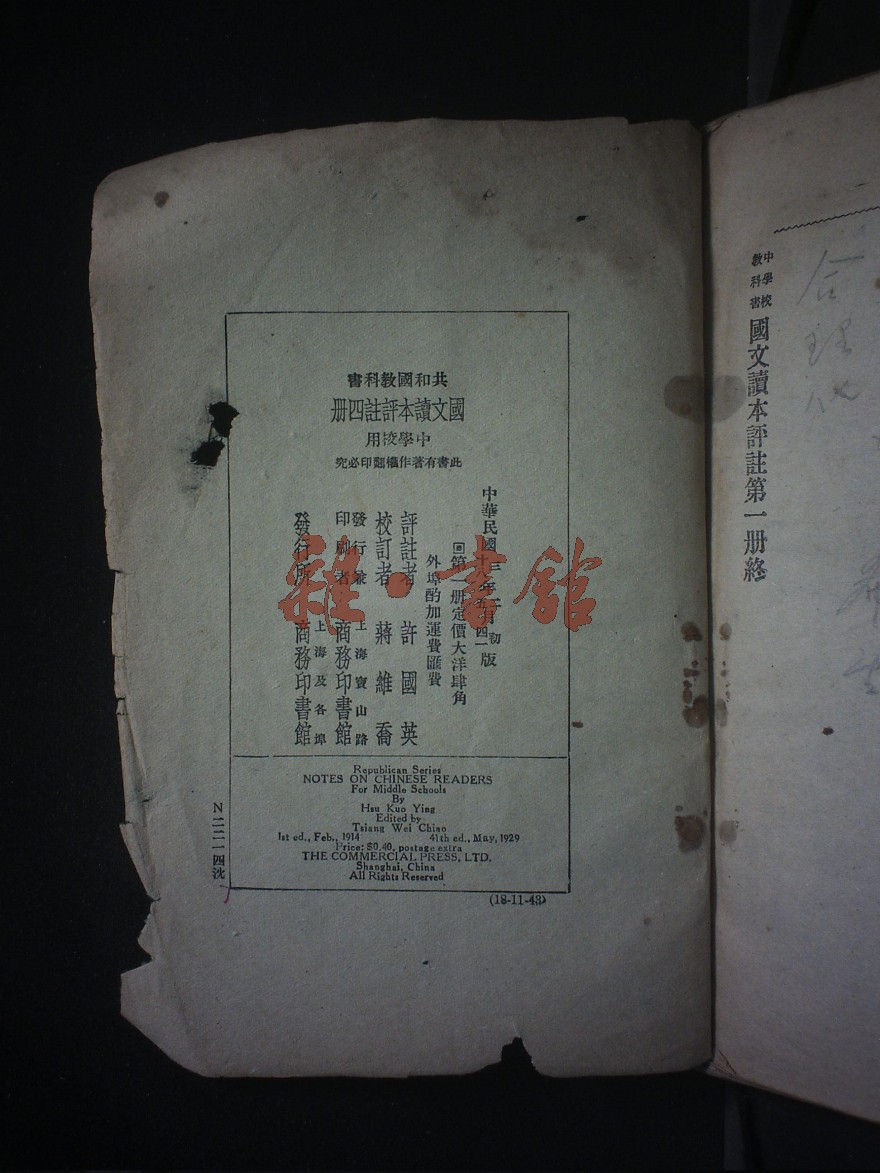 中學校
教科書
國文讀本評註第一册終
共和國教科書
國文讀本評註四册
中學校用
此書有著作權翻印必究
中華民國
三年二月初版
外埠酌加運費匯費
第一册定價大洋肆角
評註者 許國英
校訂者 蔣維喬
發行兼印刷者 上海寶山路商務印書館
發行所 上海及各埠商務印書館
雜·書館
Republican Series
NOTES ON CHINESE READERS
For Middle Schools
By
Hsu Kuo Ying
Edited by
Tsiang Wei Chiao
1st ed., Feb., 1914 41th ed., May, 1929
Price: $0.40, postage extra
THE COMMERCIAL PRESS, LTD.
Shanghai, China
All Rights Reserved
(18-11-43)
N二二一四沈
合理